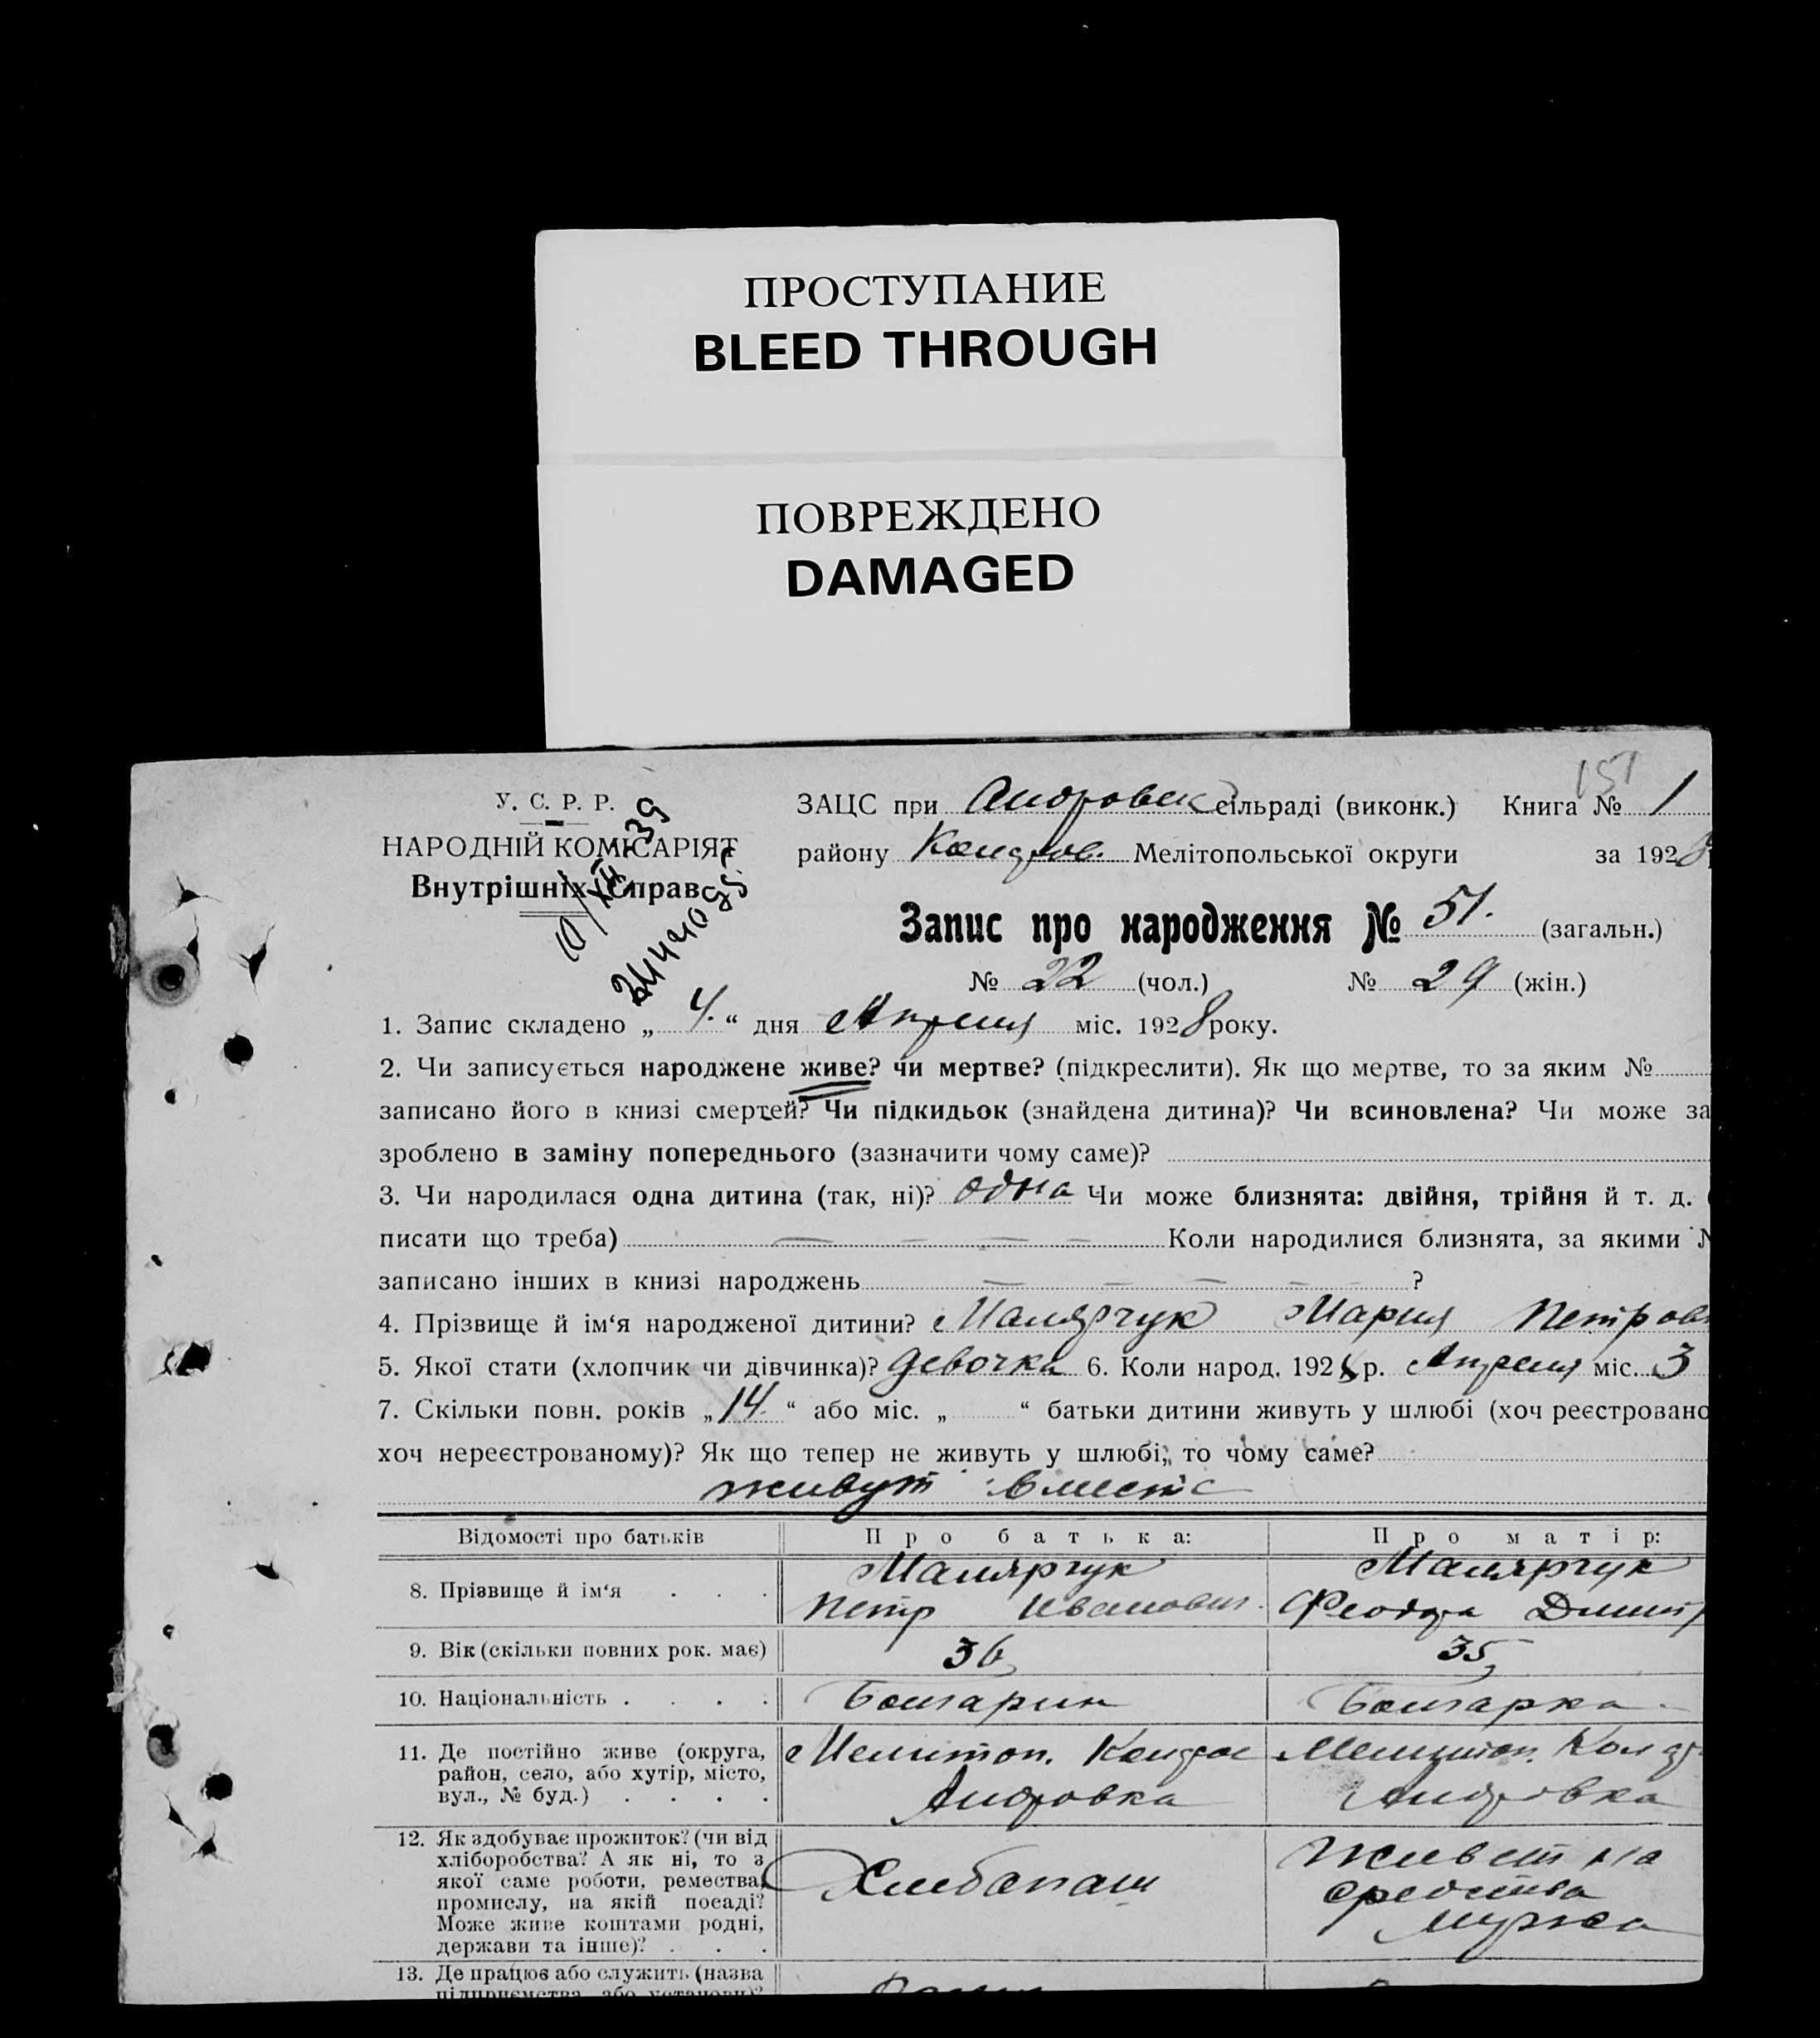 ПРОСТУПАНИЕ
BLEED THROUGH
ПОВРЕЖДЕНО
DAMAGED
151
У. С. Р. Р.
НАРОДНІЙ КОМІСАРІЯТ
Внутрішніх Справ
10/XII 39
ЗАЦС при Андровск сільраді (виконк.) Книга № 1
району Кондров. Мелітопольської округи за 1928
Запис про народження № 51. (загальн.)
№ 22 (чол.) № 29 (жін.)
1. Запис складено „ 4. “ дня Апреля міс. 1928 року.
2. Чи записується народжене живе? чи мертве? (підкреслити). Як що мертве, то за яким №
записано його в книзі смертей? Чи підкидьок (знайдена дитина)? Чи всиновлена? Чи може за
зроблено в заміну попереднього (зазначити чому саме)?
3. Чи народилася одна дитина (так, ні)? одна Чи може близнята: двійня, трійня й т. д. (
писати що треба) — — — — Коли народилися близнята, за якими №
записано інших в книзі народжень — — — — — ?
4. Прізвище й ім‘я народженої дитини? Малярчук Мария Петров
5. Якої стати (хлопчик чи дівчинка)? девочка 6. Коли народ. 1928 р. Апреля міс. 3
7. Скільки повн. років „ 14. “ або міс. „ “ батьки дитини живуть у шлюбі (хоч реєстровано
хоч нереєстрованому)? Як що тепер не живуть у шлюбі, то чому саме?
живут вместе
Відомості про батьків Про батька: Про матір:
8. Прізвище й ім‘я . . . Малярчук Петр Иванович. Малярчук Феодора Димитр
9. Вік (скільки повних рок. має) 36 35
10. Національність . . . . Болгарин Болгарка
11. Де постійно живе (округа, Мелитоп. Кондров Мелитоп. Кондр
район, село, або хутір, місто, Андровка Андровка
вул., № буд.) . . . .
12. Як здобуває прожиток? (чи від Живет на
хліборобства? А як ні, то з средства
якої саме роботи, ремества, Хлебопаш мужа
промислу, на якій посаді?
Може живе коштами родні,
держави та інше)? . . .
13. Де працює або служить (назва
підприємства, або установи)?